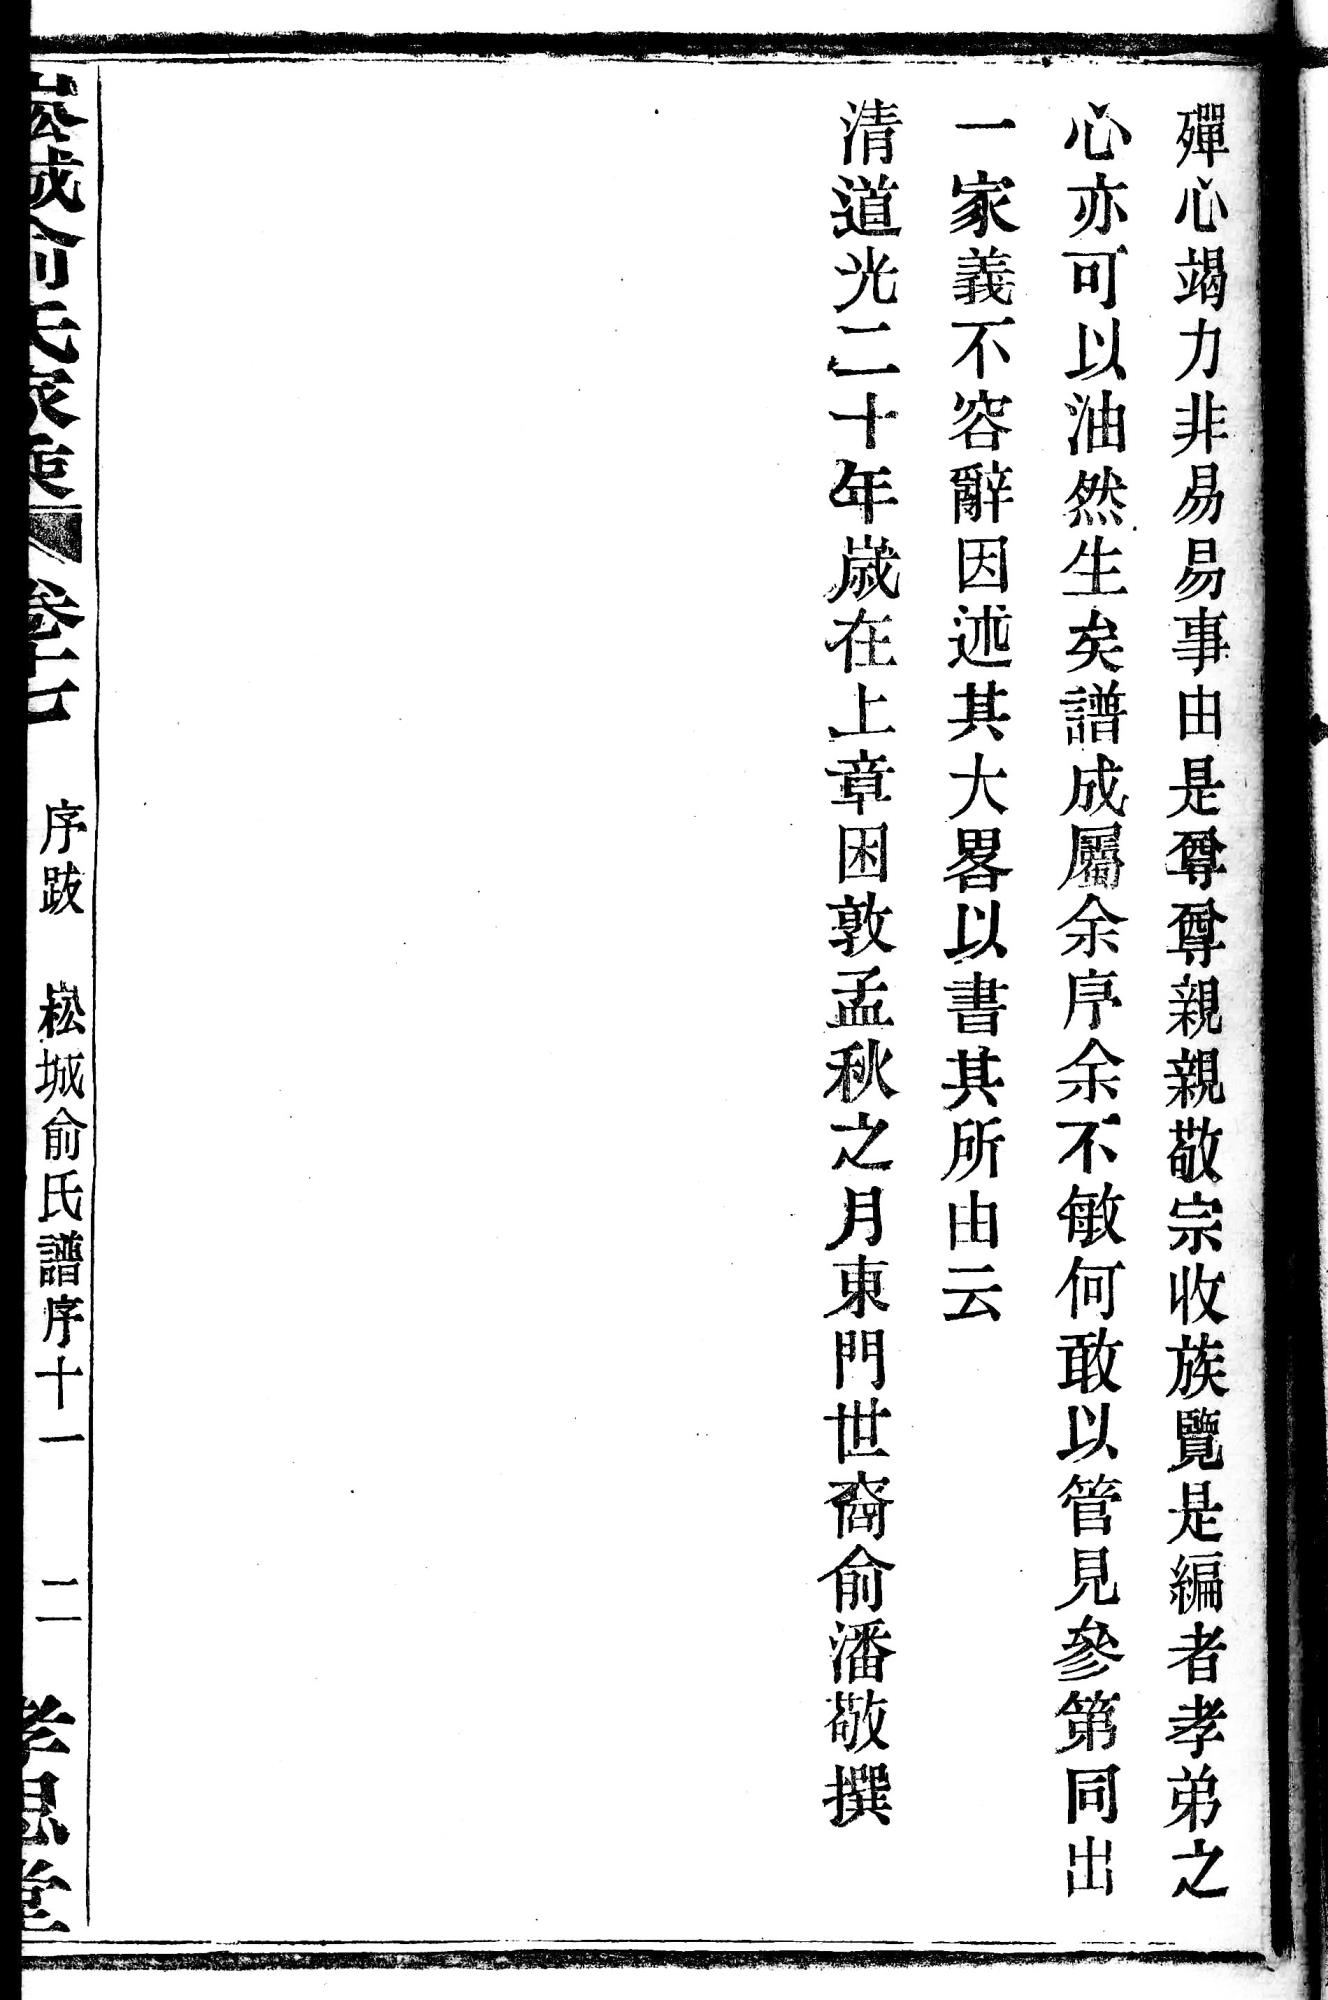 殫心竭力非易易事由是尊尊親親敬宗收族覽是編者孝弟之
心亦可以油然生矣譜成屬余序余不敏何敢以管見參第同出
一家義不容辭因述其大畧以書其所由云
清道光二十年歲在上章困敦孟秋之月東門世裔俞潘敬撰
崧城俞氏家乘 卷十七 序跋 崧城俞氏譜序十一 二 孝思堂